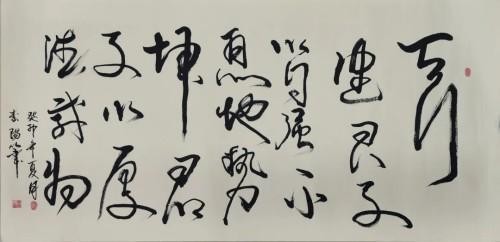 天行
健君子
以自强不
息地势
坤君
子以厚
德载物
癸卯年夏月
李瑞笔